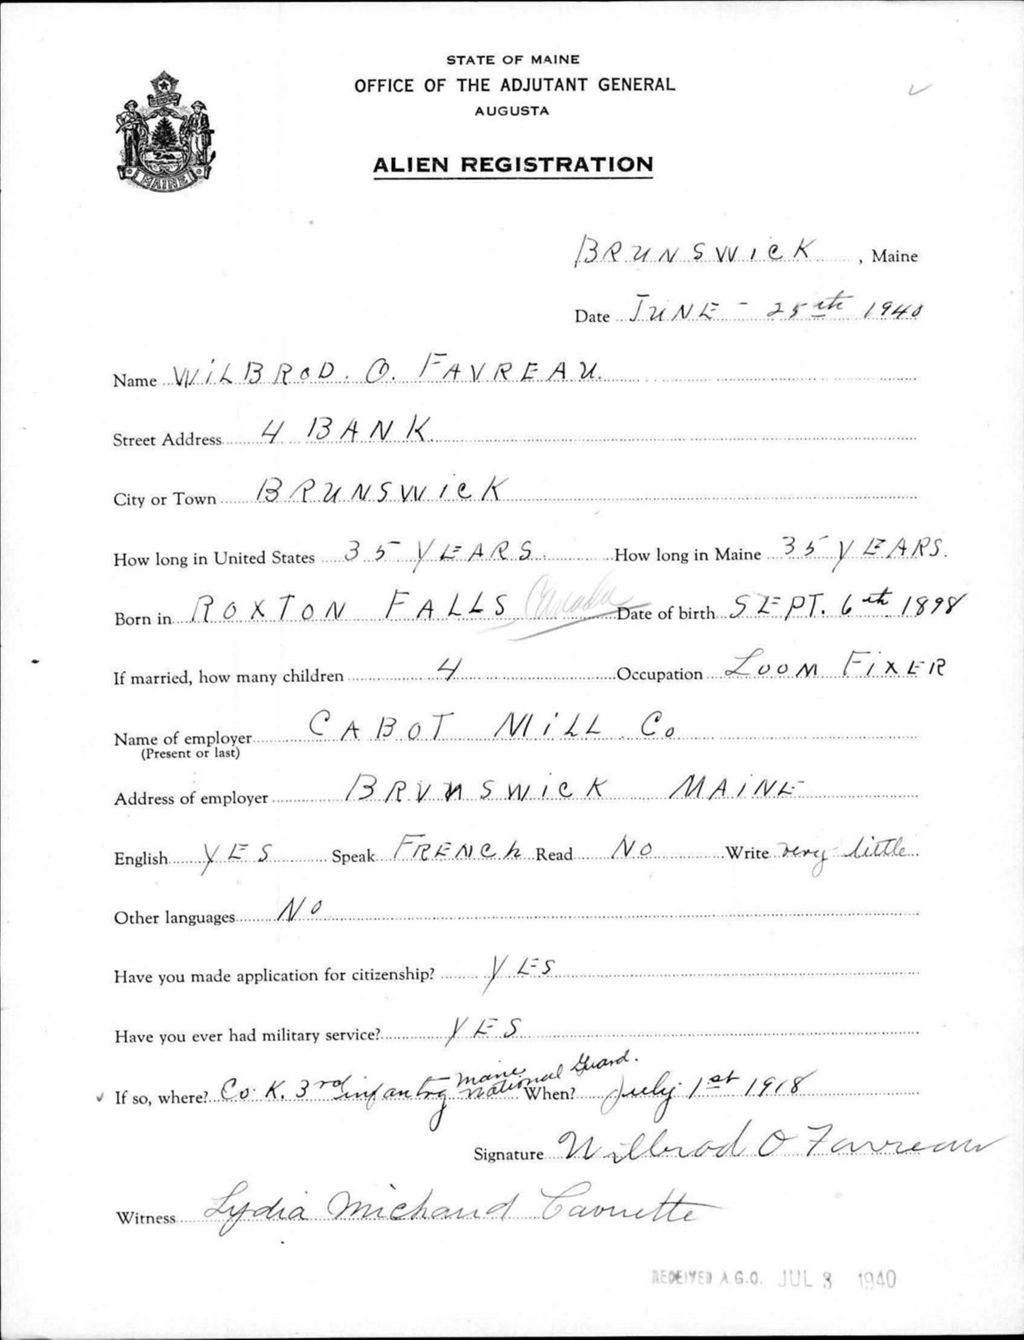 STATE OF MAINE
OFFICE OF THE ADJUTANT GENERAL
AUGUSTA
ALIEN REGISTRATION
MAINE
BRUNSWICK, Maine
Date JUNE - 25th 1940
Name WiLBROD. O. FAVREAU.
Street Address 4 BANK
City or Town BRUNSWicK
How long in United States 35 YEARS. How long in Maine 35 YEARS.
Born in ROXTON FALLS Canada Date of birth SEPT. 6th 1898
If married, how many children 4 Occupation LOOM FixER
Name of employer CABOT MiLL Co
(Present or last)
Address of employer BRUNSWicK MAiNE
English YES Speak FRENch Read NO Write very little
Other languages No
Have you made application for citizenship? YES
Have you ever had military service? YES
If so, where? Co. K. 3rd infantry Maine National Guard. When? July 1st 1918
Signature Wilbrod O Favreau
Witness Lydia Michaud
RECEIVED A.G.O. JUL 3 1940